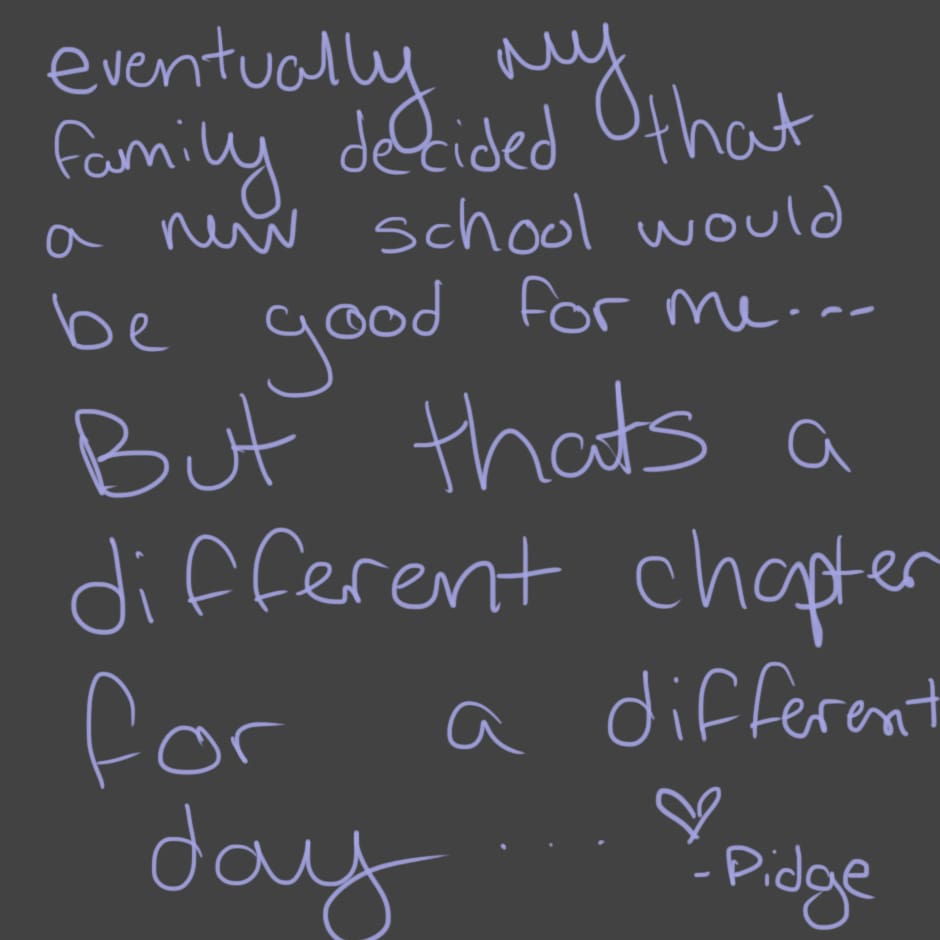 eventually my
family decided that
a new school would
be good for me...
But thats a
different chapter
for a different
day .... ♡
-Pidge